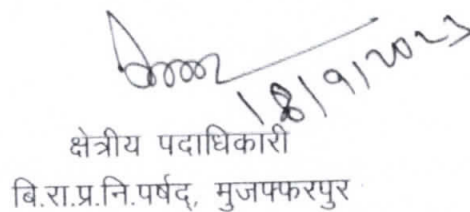 18/9/2023
क्षेत्रीय पदाधिकारी
बि.रा.प्र.नि.पर्षद्, मुजफ्फरपुर